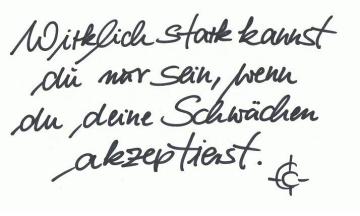 Wirklich stark kannst
du nur sein, wenn
du deine Schwächen
akzeptierst.